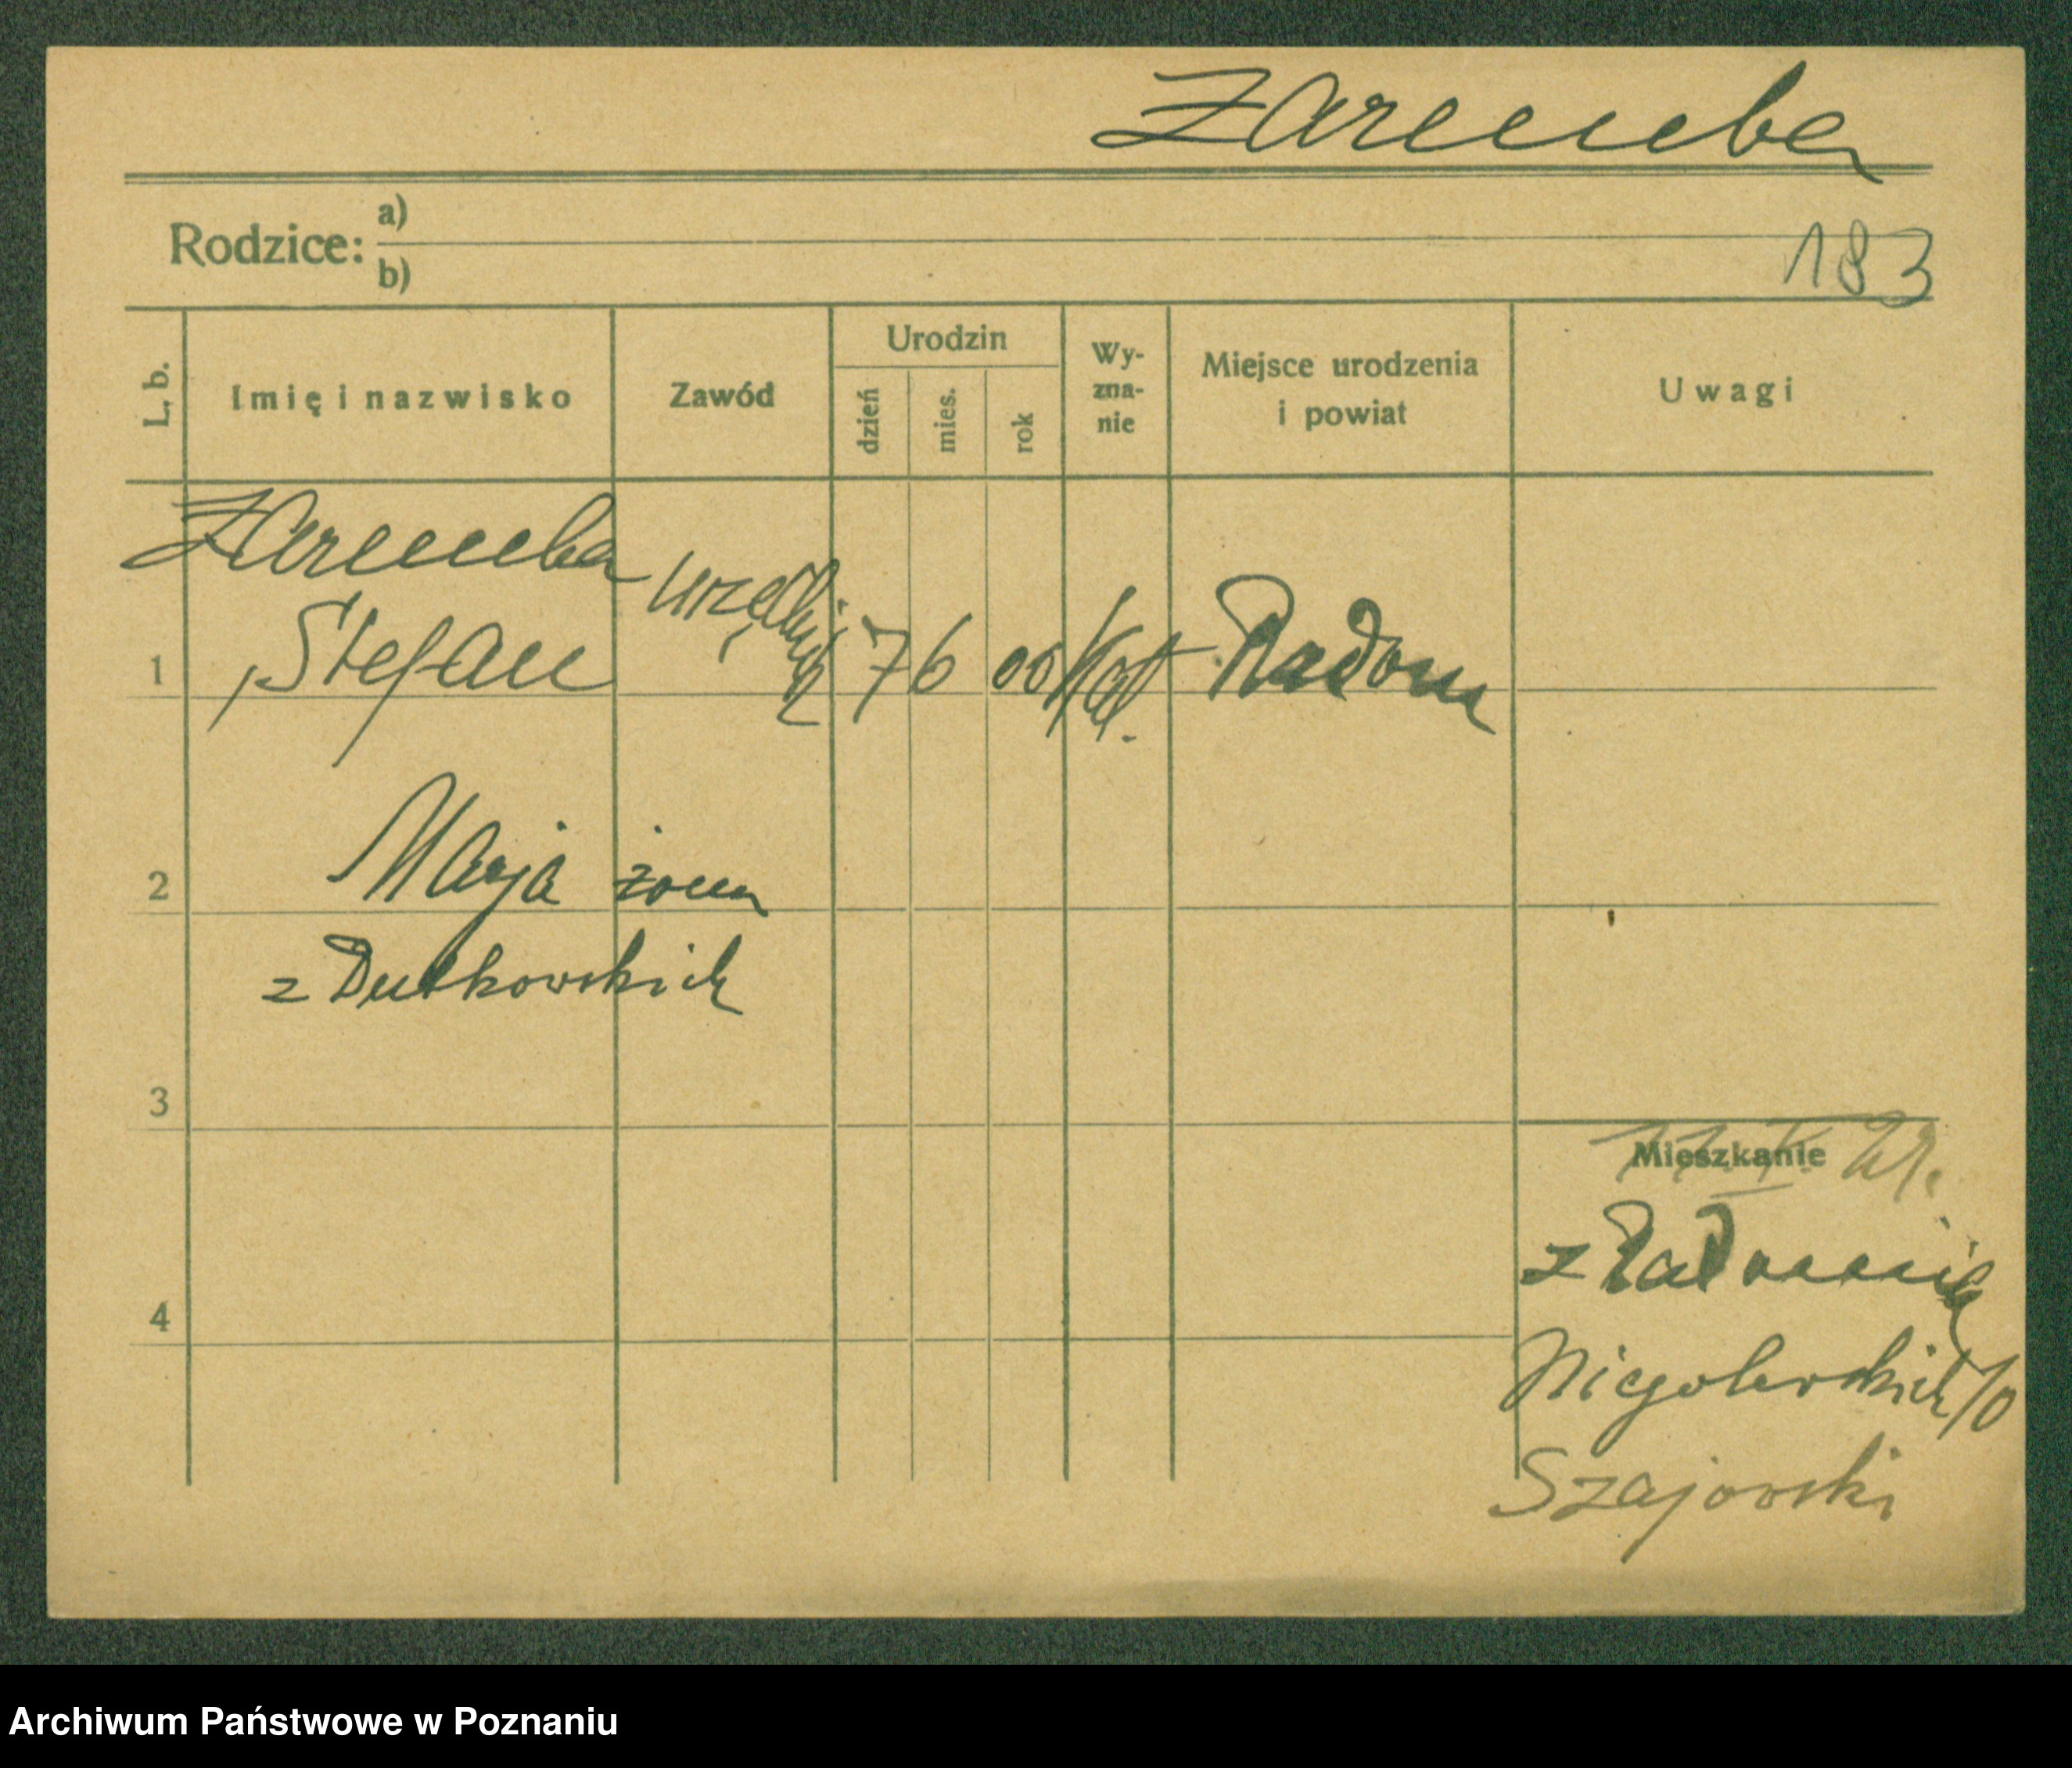 Zaremba
Rodzice: a)
b)
183
L. b.
Imię i nazwisko
Zawód
Urodzin
dzień
mies.
rok
Wy-
zna-
nie
Miejsce urodzenia
i powiat
Uwagi
Zaremba
1 Stefan urzędnik 7 6 00 kat. Radom
2 Marja żona
z Dutkowskich
3
4
Mieszkanie
29.
z Radomia
Niegolewskich 10
Szajowski
Archiwum Państwowe w Poznaniu